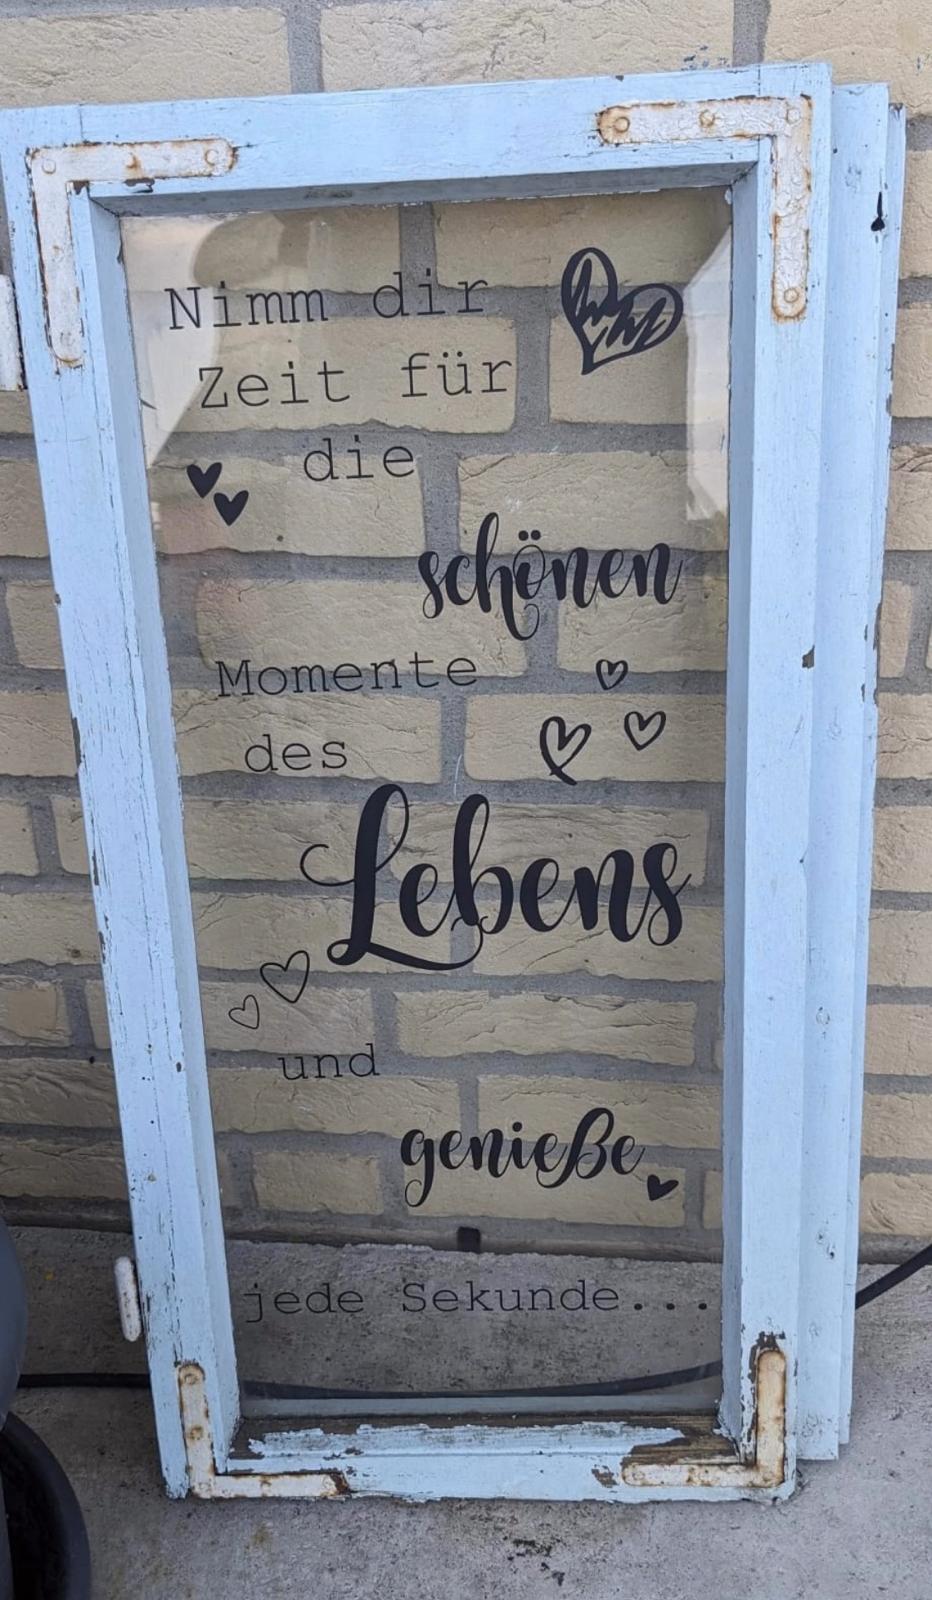 Nimm dir
Zeit für
die
schönen
Momente
des
Lebens
und
genieße
jede Sekunde...